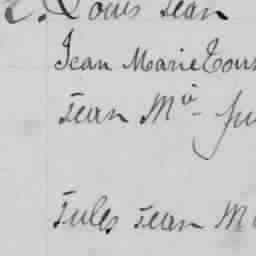 Louis Jean
Jean Marie Tous
Jean Mie Ju
Jules Jean M